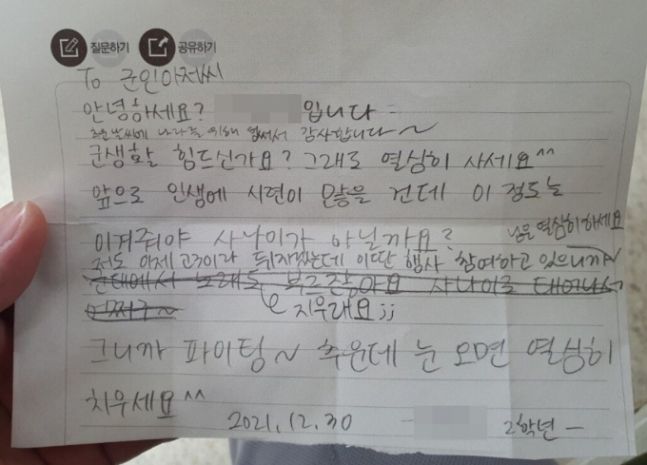 질문하기 공유하기
To 군인아저씨
안녕하세요? 입니다
추운날씨에 나라를 위해 힘써서 감사합니다~
군생활 힘드신가요? 그래도 열심히 사세요^^
앞으로 인생에 시련이 많을 건데 이 정도는
이겨줘야 사나이가 아닐까요?
저도 이제 고3이라 뒤지겠는데 이딴 행사 참여하고 있으니까~
님은 열심히 하세요
군대에서 노래도 부르잖아요 사나이로 태어나서
어쩌구~
지우래요;;
그니까 파이팅~ 추운데 눈 오면 열심히
치우세요^^
2021.12.30 2학년 -